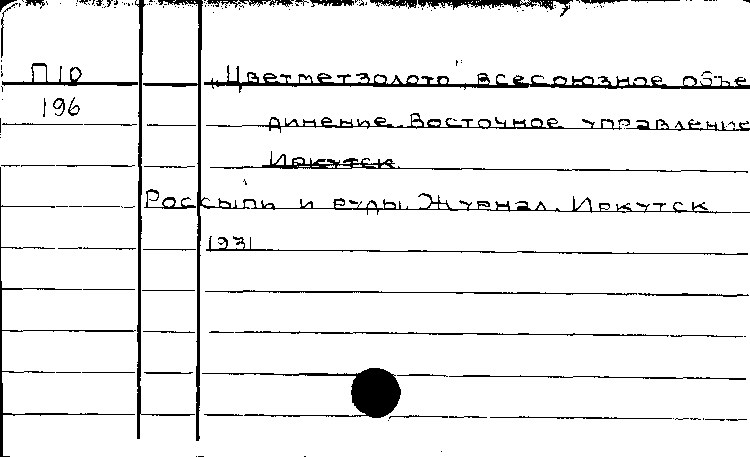 П10 „Цветметзолото" всесоюзное объе
196 динение. Восточное управление
Иркутск.
Россыпи и руды. Журнал. Иркутск
1931